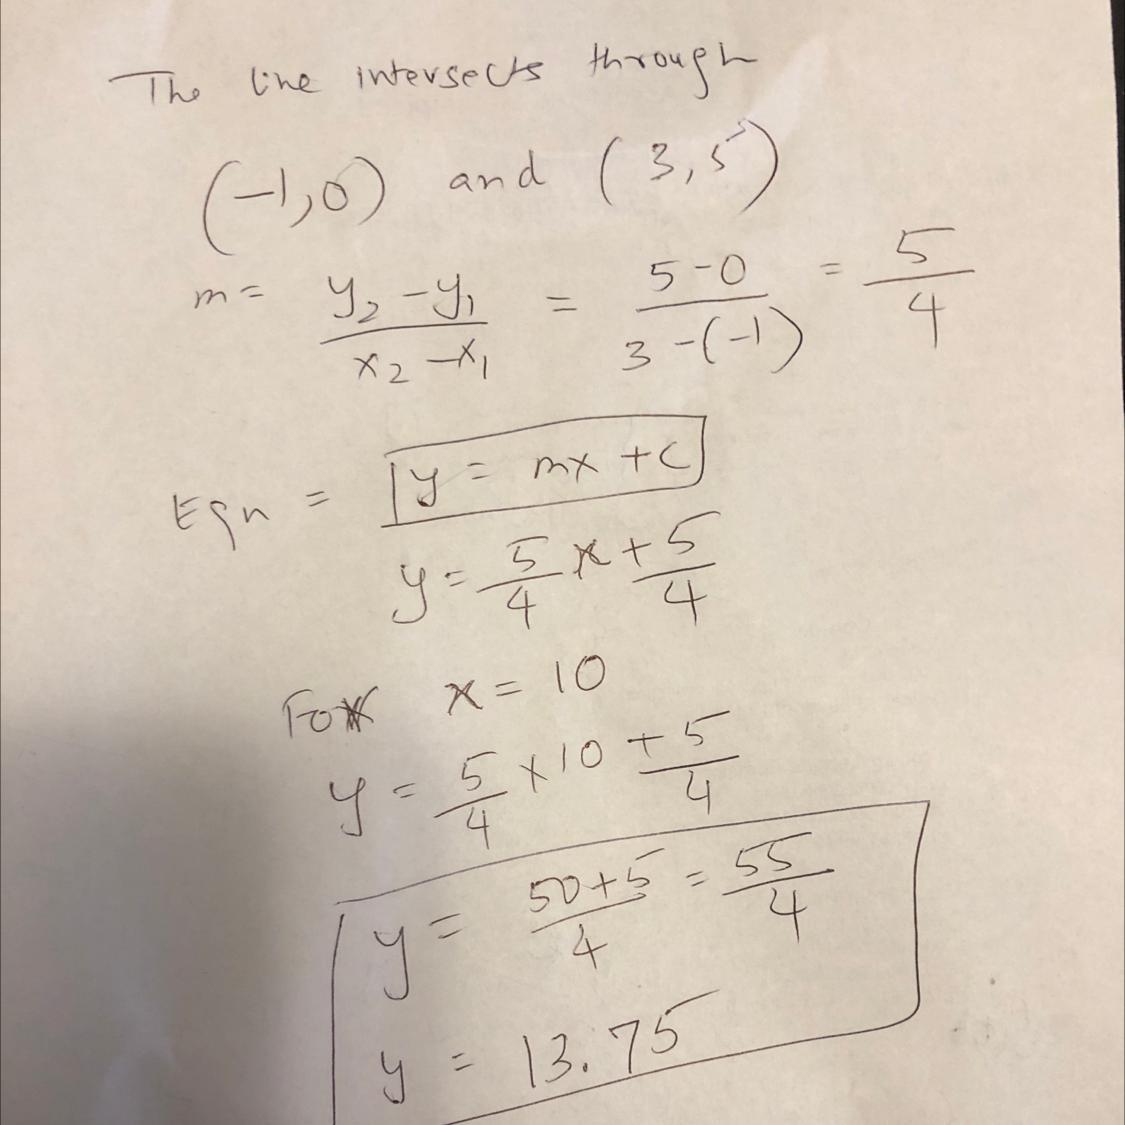 The line intersects through
(-1,0) and (3,5)
m = y₂-y₁/x₂-x₁ = 5-0/3-(-1) = 5/4
Eqn = y = mx + c
y = 5/4 x + 5/4
For x = 10
y = 5/4 × 10 + 5/4
y = 50+5/4 = 55/4
y = 13.75